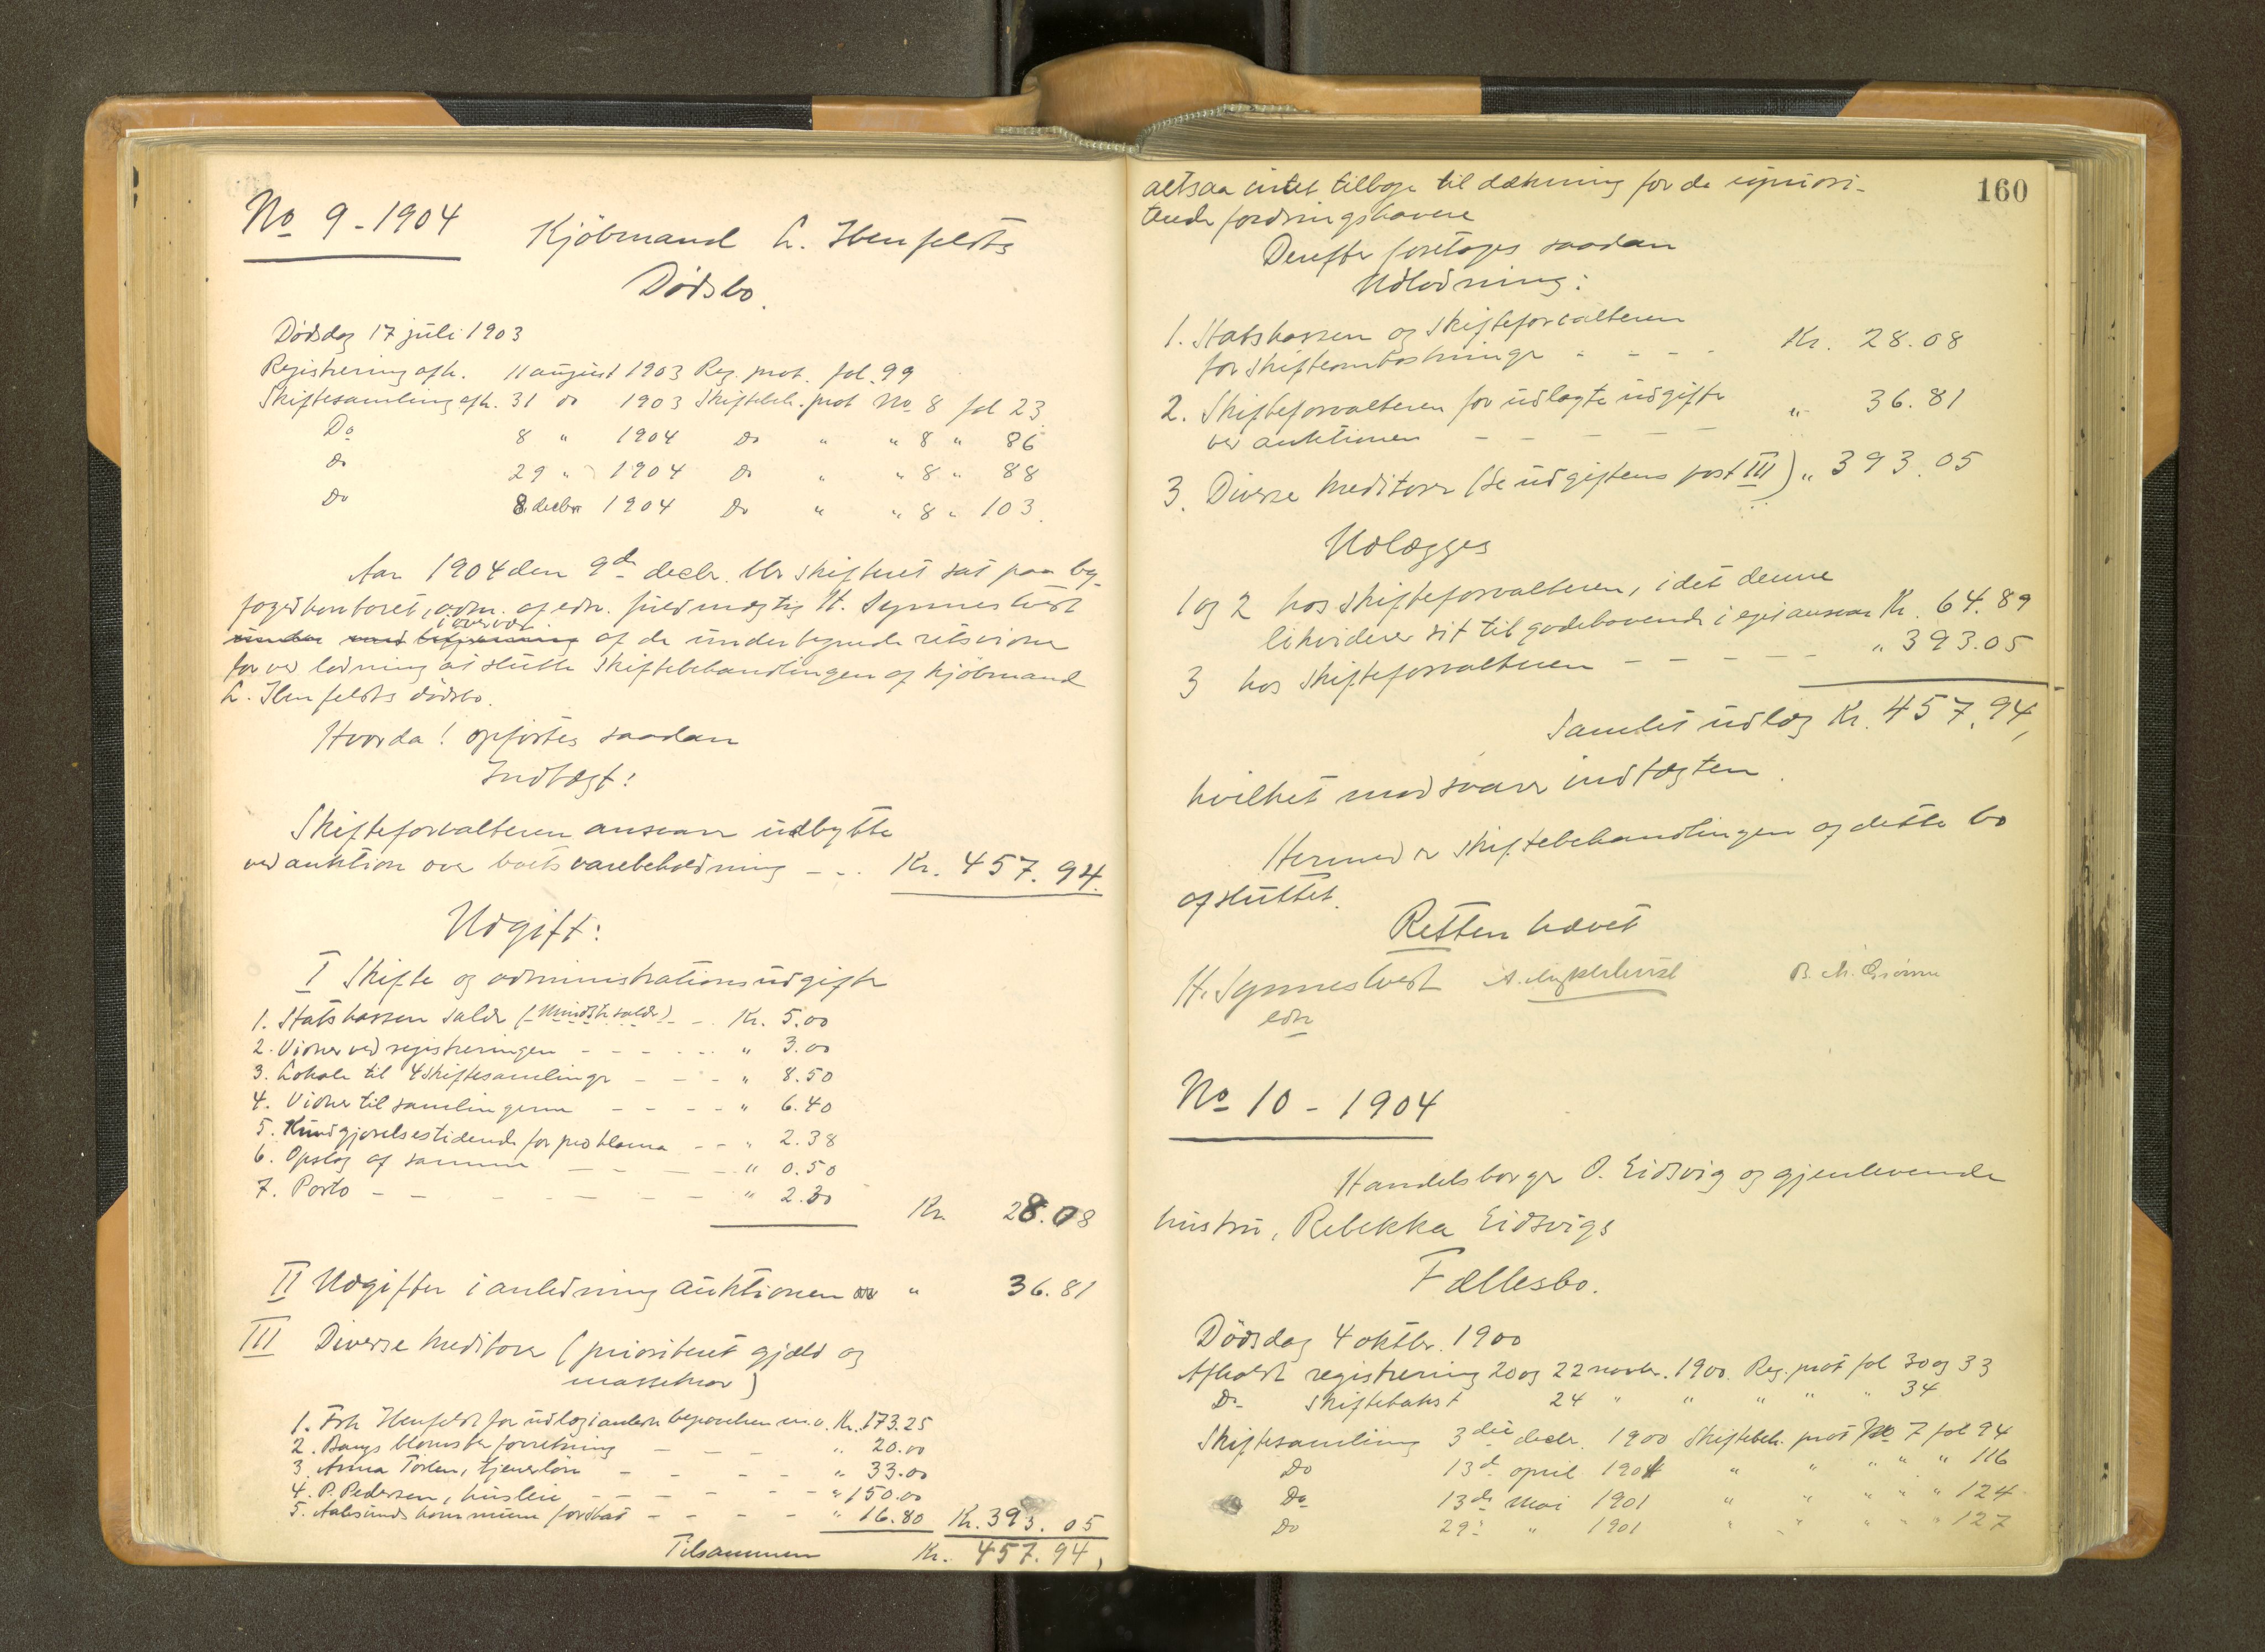 No 9 - 1904
Kjöbmand L. Ibenfeldts
Dødsbo.
Dødsdag 17 juli 1903
Registrering afh. 11 august 1903 Reg. prot. fol. 99
Skiftesamling afh. 31 do 1903 Skiftebeh. prot No 8 fol 23
Do 8 " 1904 Do " " 8 " 86
do 29 " 1904 Do " " 8 " 88
Do 8 decbr 1904 Do " " 8 " 103.
Aar 1904 den 9de decbr. blev skifteret sat paa by-
fogedkontoret, adm. af edsv. fuldmægtig H. Synnestvedt
i overvær
af de undertegnede retsvidner
for ved lodning at slutte skiftebehandlingen af kjöbmand
L. Ibenfeldts dødsbo.
Hvorda! opførtes saadan
Indtægt:
Skifteforvalteren ansvarer udbytte
ved auktion over boets varebeholdning - - . Kr. 457.94.
Udgift:
I Skifte og administrationsudgifter
1. Statskassen salær (Mindste salær) - - Kr. 5.00
2. Vidner ved registreringen - - - - - " 3.00
3. Lokale til 4 skiftesamlinger - - - " 8.50
4. Vidner til samlingerne - - - - " 6.40
5. Kundgjørelsestidende for proklama - - " 2.38
6. Opslag af samme - - - - " 0.50
7. Porto - - - - - - - " 2.30
Kr. 28.08
II Udgifter i anledning auktionen " 36.81
III Diverse kreditorer (prioriteret gjæld og
massekrav)
1. Frk Ibenfeldt for udlæg i anledn begravelsen m.v. Kr. 173.25
2. Bangs blomsterforretning - - - " 20.00
3. Anna Torlen, tjenerløn - - - - " 33.00
4. P. Pedersen, husleie - - - - - " 150.00
5. Aalesunds kommune forskat - - - - " 16.80 Kr. 393.05
Tilsammen Kr. 457.94,
160
altsaa intet tilbage til dækning for de upriori-
terede fordringshavere
Derefter foretages saadan
Udlodning:
1. Statskassen og skifteforvalteren
for skifteomkostninger - - - - Kr. 28.08
2. Skifteforvalteren for udlagte udgifter
ved auktionen - - - - - - " 36.81
3. Diverse kreditorer (se udgiftens post III) " 393.05
Udlægges
1 og 2 hos skifteforvalteren, idet denne
likviderer sit tilgodehavende i eget ansvar Kr. 64.89
3 hos skifteforvalteren - - - - - " 393.05
Samlet udlæg Kr. 457.94,
hvilket modsvarer indtægten.
Hermed er skiftebehandlingen af dette bo
afsluttet.
Retten hævet
H. Synnestvedt
edsv
No 10 - 1904
Handelsborger O. Eidsvig og gjenlevende
hustru, Rebekka Eidsvigs
Fællesbo.
Dödsdag 4 oktbr. 1900
Afholdt registrering 20 og 22 novbr. 1900. Reg. prot fol 30 og 33
Do skiftetakst 24 " " " " " 34
Skiftesamling 3die decbr. 1900 Skiftebeh. prot No 7 fol 94
Do 13de april 1901 " " " " " 116
Do 13de mai 1901 " " " " " 124
Do 29: " 1901 " " " " " 127